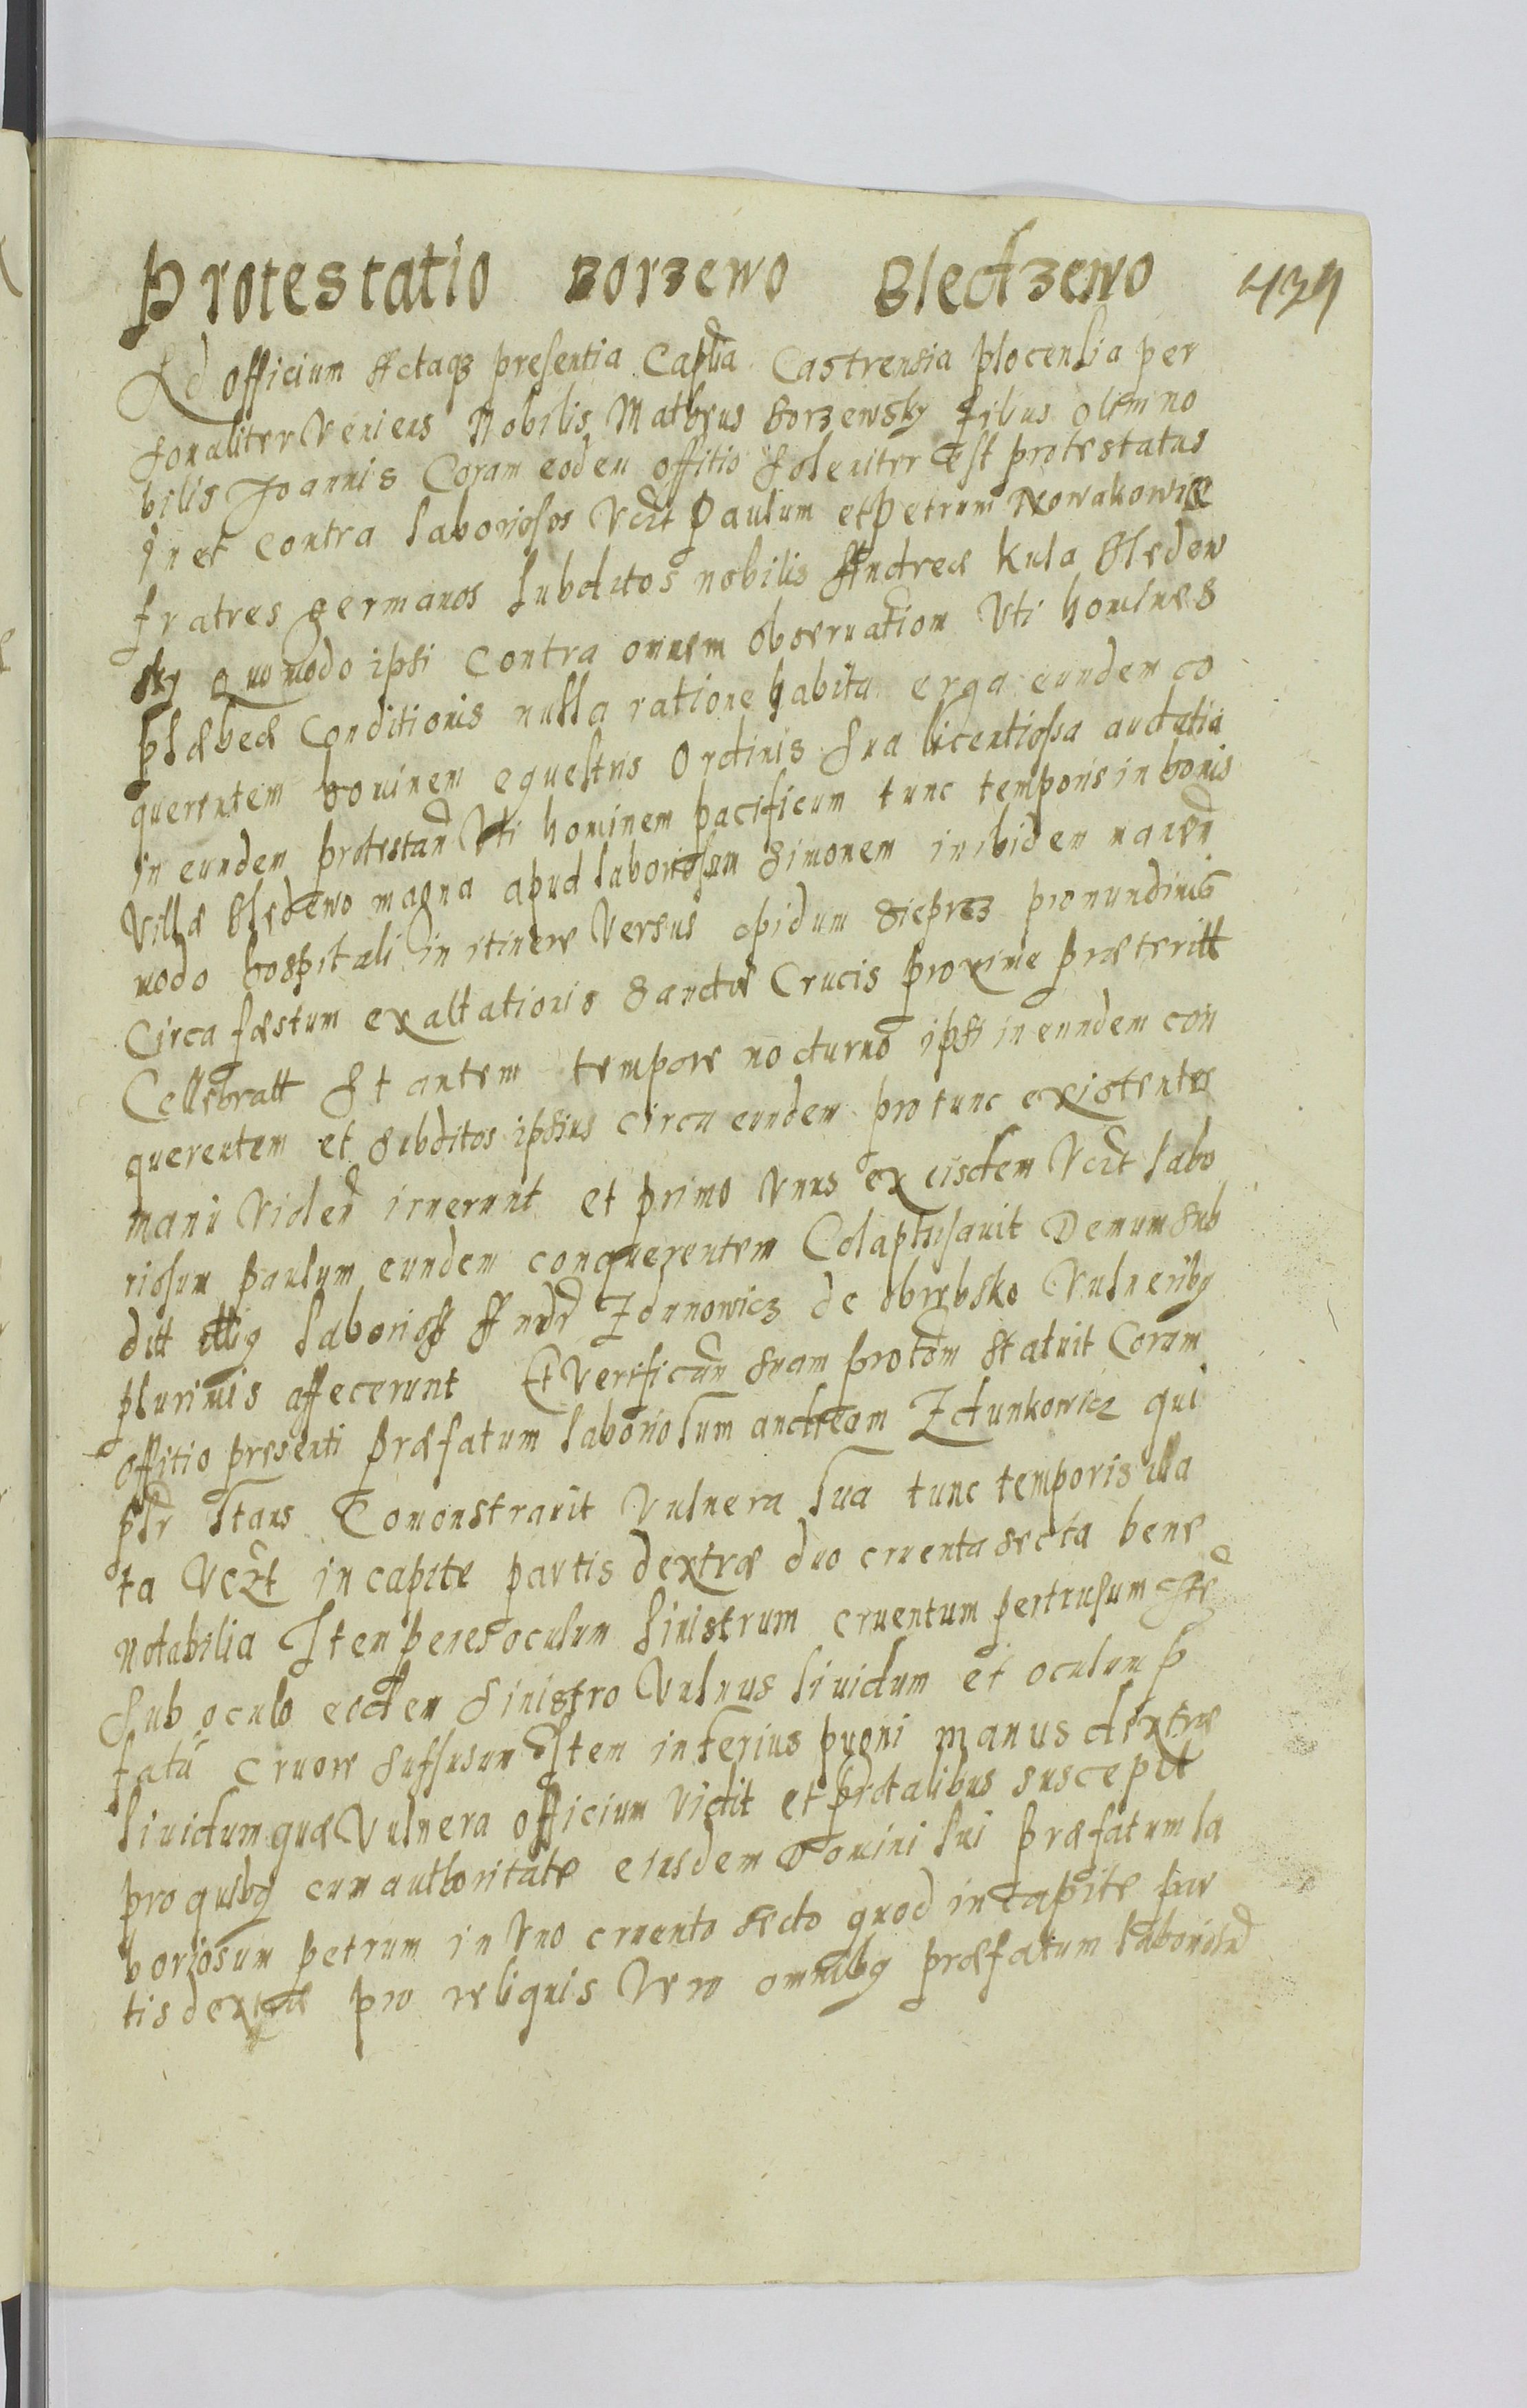 Protestatio Borzewo Bledzewo 439
Ad Officium Actaq3 presentia Captlia Castrensia plocensia per
sonaliter Veniens Nobilis Matheus Borzewsky filius olim no
bilis Joannis Coram eodem offitio soleniter est protestatus
In et contra laboriosos Vczt Paulum et Petrum Nowakowicze
fratres germanos subditos nobilis Andreæ Kula Bledow
sky Quomodo ipsi contra omnem observation Vti homines
plæbeæ Conditionis nulla ratione habita erga eundem co
querentem hominem equestris Ordinis sua licentiossa audatia
in eundem protestan Vti hominem pacificum tunc temporis in bonis
Villæ Bledzewo magna apud laboriosum Simonem inibidem manen
modo hospitali in itinere Versus opidum Sieprcz pro nundinis
Circa fæstum exaltationis Sanctæ Crucis proxime præteritt
Cellebratt St autem tempore nocturno ipsi in eundem con
querentem et subditos ipsius circa eundem pro tunc existentes
manu violen irruerunt et primo Vnus ex eisdem Vczt labo
riosum paulum eundem conquerentem Colaphisavit Demum sub
ditt illius laborioss Andr Zdunowicz de obrebsko Vulneribg
plurimis affecerunt Et Verifican suam protom statuit Coram
offitio presenti præfatum laboriosum andream Zdunkowicz qui
pltr stans Comonstravit Vulnera sua tunc temporis illa
ta Vczt in capite partis dextræ duo cruenta secta bene
notabilia Item penes oculum sinistrum cruentum pertrusum Ite
sub oculo eodem sinistro Vulnus lividum et oculum p
fatu cruore suffusum Item inferius pugni manus dextræ
lividum quæ Vulnera officium vidit et pro talibus suscepit
pro quibg cum authoritate eiusdem Domini sui præfatum la
boriosum petrum in Vno cruento secto quod in capite par
tis dextræ pro reliquis Vero omnibg præfatum laborios